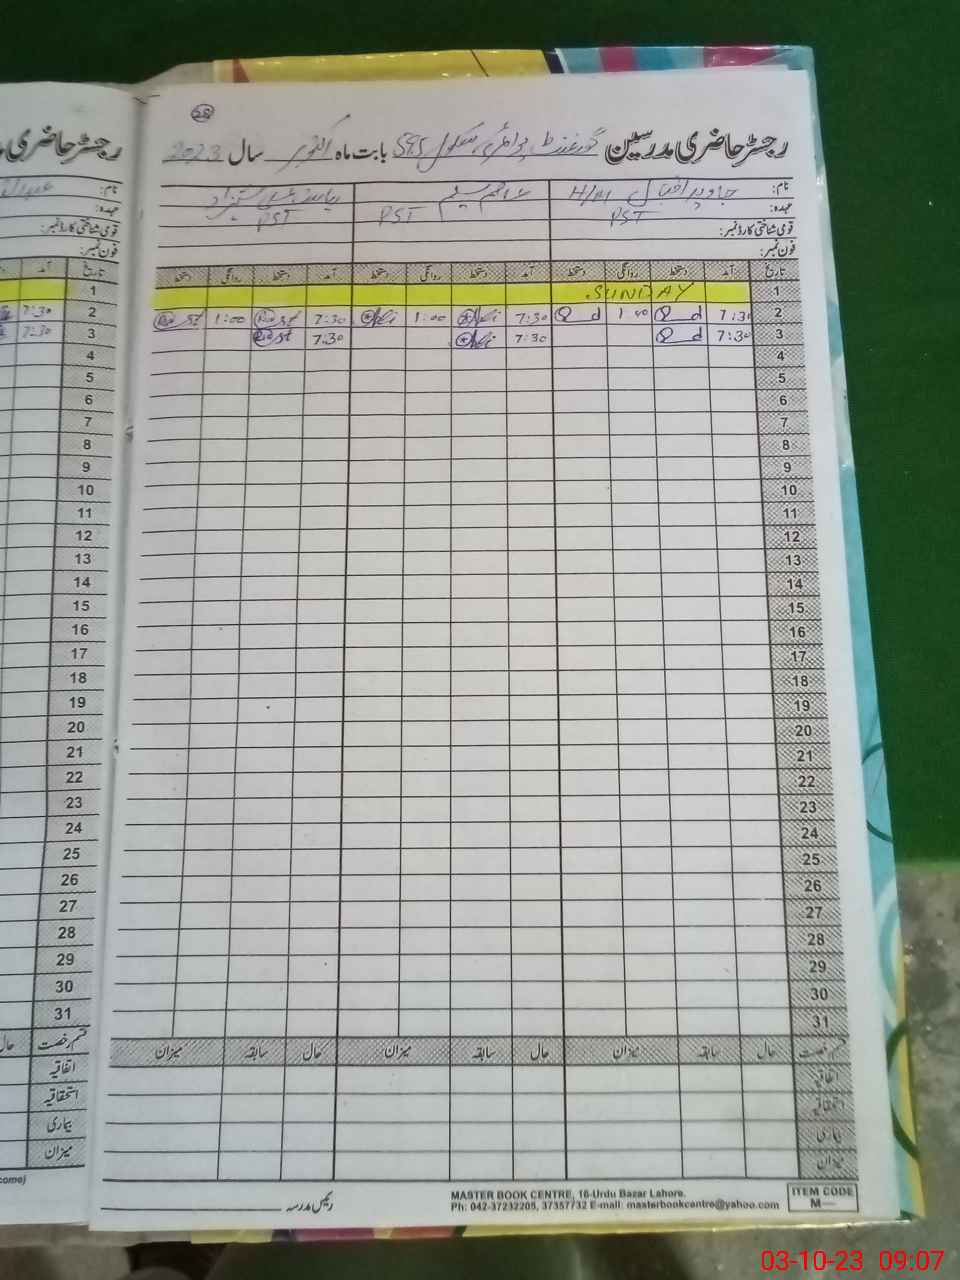 58
رجسٹر حاضری مدرسین گورنمنٹ پرائمری سکول 595 بابت ماہ اکتوبر سال 2023
نام: جاوید اقبال H/M
قومی شناختی کارڈ نمبر:
عہدہ: PST PST PST
فون نمبر:
تاریخ آمد دستخط روانگی دستخط آمد دستخط روانگی دستخط آمد دستخط روانگی دستخط
1 SUNDAY
2 7:30 1:00 7:30 1:00 7:30 1:00
3 7:30 7:30 7:30
4
5
6
7
8
9
10
11
12
13
14
15
16
17
18
19
20
21
22
23
24
25
26
27
28
29
30
31
قسم رخصت حال سابقہ میزان حال سابقہ میزان حال سابقہ میزان
اتفاقیہ
استحقاقیہ
بیماری
میزان
رئیس مدرسہ
MASTER BOOK CENTRE, 16-Urdu Bazar Lahore.
Ph: 042-37232205, 37357732 E-mail: masterbookcentre@yahoo.com
ITEM CODE
M—
رجسٹر حاضری
نام:
عہدہ:
قومی شناختی کارڈ نمبر:
فون نمبر:
تاریخ آمد
1
2 7:30
3 7:30
4
5
6
7
8
9
10
11
12
13
14
15
16
17
18
19
20
21
22
23
24
25
26
27
28
29
30
31
قسم رخصت حال
اتفاقیہ
استحقاقیہ
بیماری
میزان
03-10-23 09:07